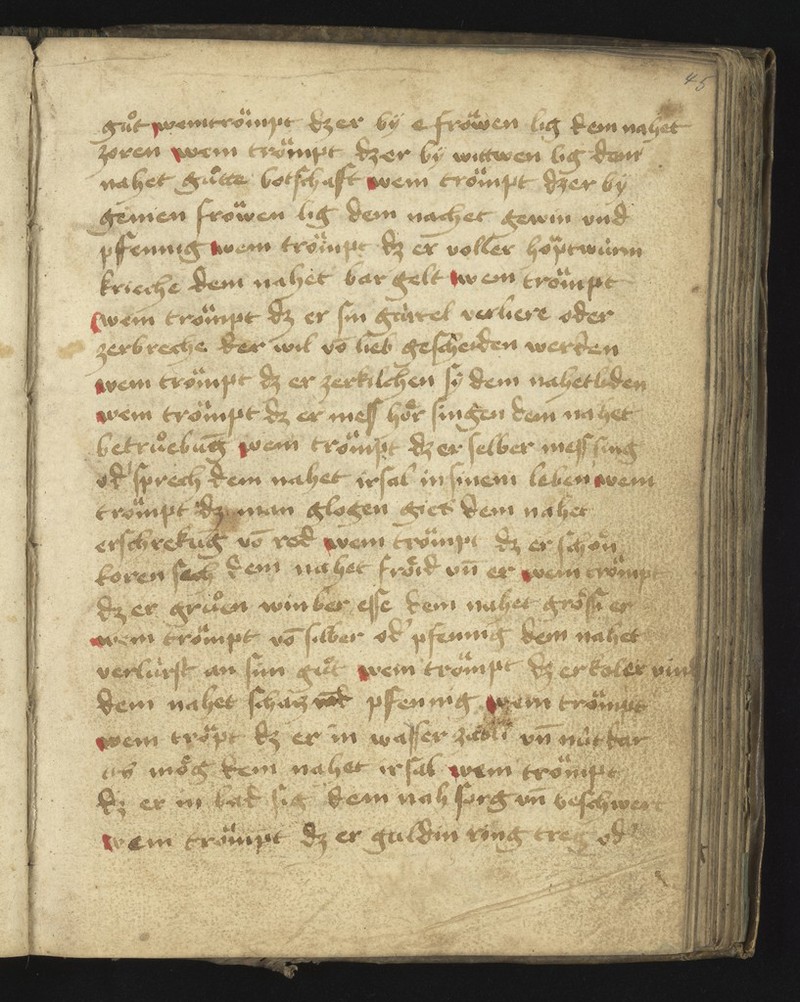 45
guͦt wem trömpt dz er bÿ e fröwen lig dem nahet
zoren wem trömpt dz er bÿ wittwen lig dem
nahet guͦtte botschaft wem trömpt dz er bÿ
gemen fröwen lig dem nachet gewin vnd
pfennig wem trömpt dz er voller höptwürm
krieche dem nahet bar gelt wem trömpt
wem trömpt dz er sin gürtel verliere oder
zerbreche der wil vō lieb gescheiden werden
wem trömpt dz er ze kilchen sÿ dem nahet liden
wem trömpt dz er mess hör singen dem nahet
betruͤebung wem trömpt dz er selber mess sing
od' sprech dem nahet irsal in sinem leben wem
trömpt dz man glogen giest dem nahet
erschrekūg vō red wem trömpt dz er schön
koren sech dem nahet fröid vn̄ er wem trömpt
dz er gruͤen winber esse dem nahet grössi er
wem trömpt vō silber od' pfennig dem nahet
verlürst an sim guͦt wem trömpt dz er koler vin
dem nahet schatz pfennig wem trömpt
wem tröpt dz er in wasser zabli vn̄ nüt dar
us mög dem nahet irsal wem trömpt
dz er in bad sig dem nah sorg vn̄ beschwert
wem trömpt dz er guldin ring treg od'